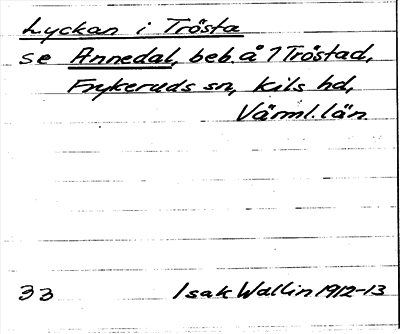 Lyckan i Trösta
se Annedal, beb. å 7 Tröstad,
Frykeruds sn, Kils hd,
Värml. län.
33 Isak Wallin 1912-13